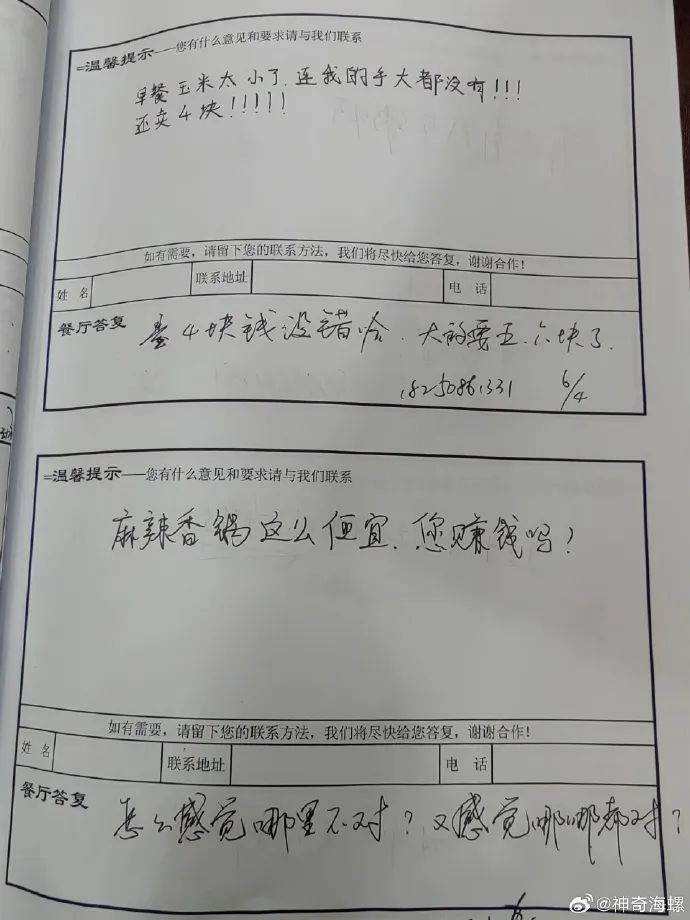 =温馨提示——您有什么意见和要求请与我们联系
早餐玉米太小了,连我的手大都没有!!!
还卖4块!!!!!
如有需要,请留下您的联系方法,我们将尽快给您答复,谢谢合作!
姓 名
联系地址
电 话
餐厅答复
4块钱没错哈.大的要五.六块了.
18250861331 6/4
=温馨提示——您有什么意见和要求请与我们联系
麻辣香锅这么便宜.您赚钱吗?
如有需要,请留下您的联系方法,我们将尽快给您答复,谢谢合作!
姓 名
联系地址
电 话
餐厅答复
怎么感觉哪里不对?又感觉哪哪都对?
@神奇海螺